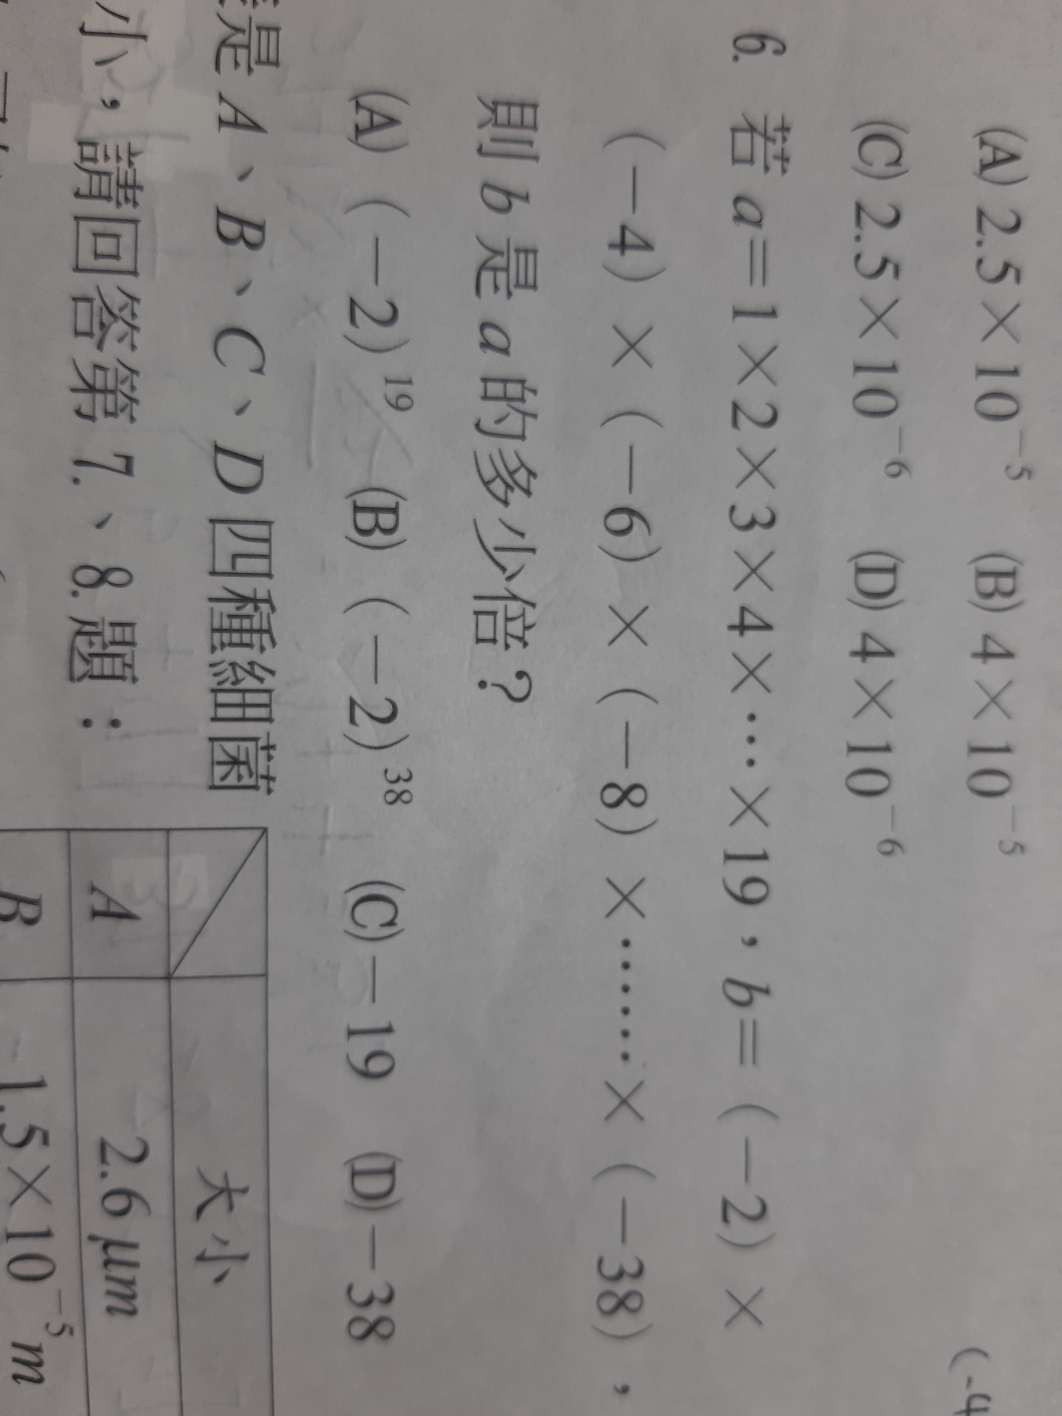 (A) 2.5×10⁻⁵ (B) 4×10⁻⁵
(C) 2.5×10⁻⁶ (D) 4×10⁻⁶
6. 若 a=1×2×3×4×…×19，b=(-2)×
(-4)×(-6)×(-8)×……×(-38)，
則 b 是 a 的多少倍？
(A) (-2)¹⁹ (B) (-2)³⁸ (C) -19 (D) -38
是 A、B、C、D 四種細菌
小，請回答第 7.、8. 題：
大小
A 2.6 μm
B 1.5×10⁻⁵ m
(-4